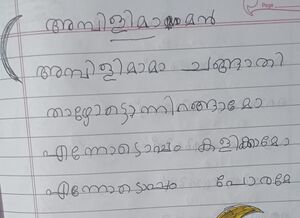 അമ്പിളിമാമൻ
അമ്പിളിമാമാ ചങ്ങാതി
താഴോട്ടൊന്നിറങ്ങാമോ
എന്നോടൊപ്പം കളിക്കാമോ
എന്നോടൊപ്പം പോരാമോ